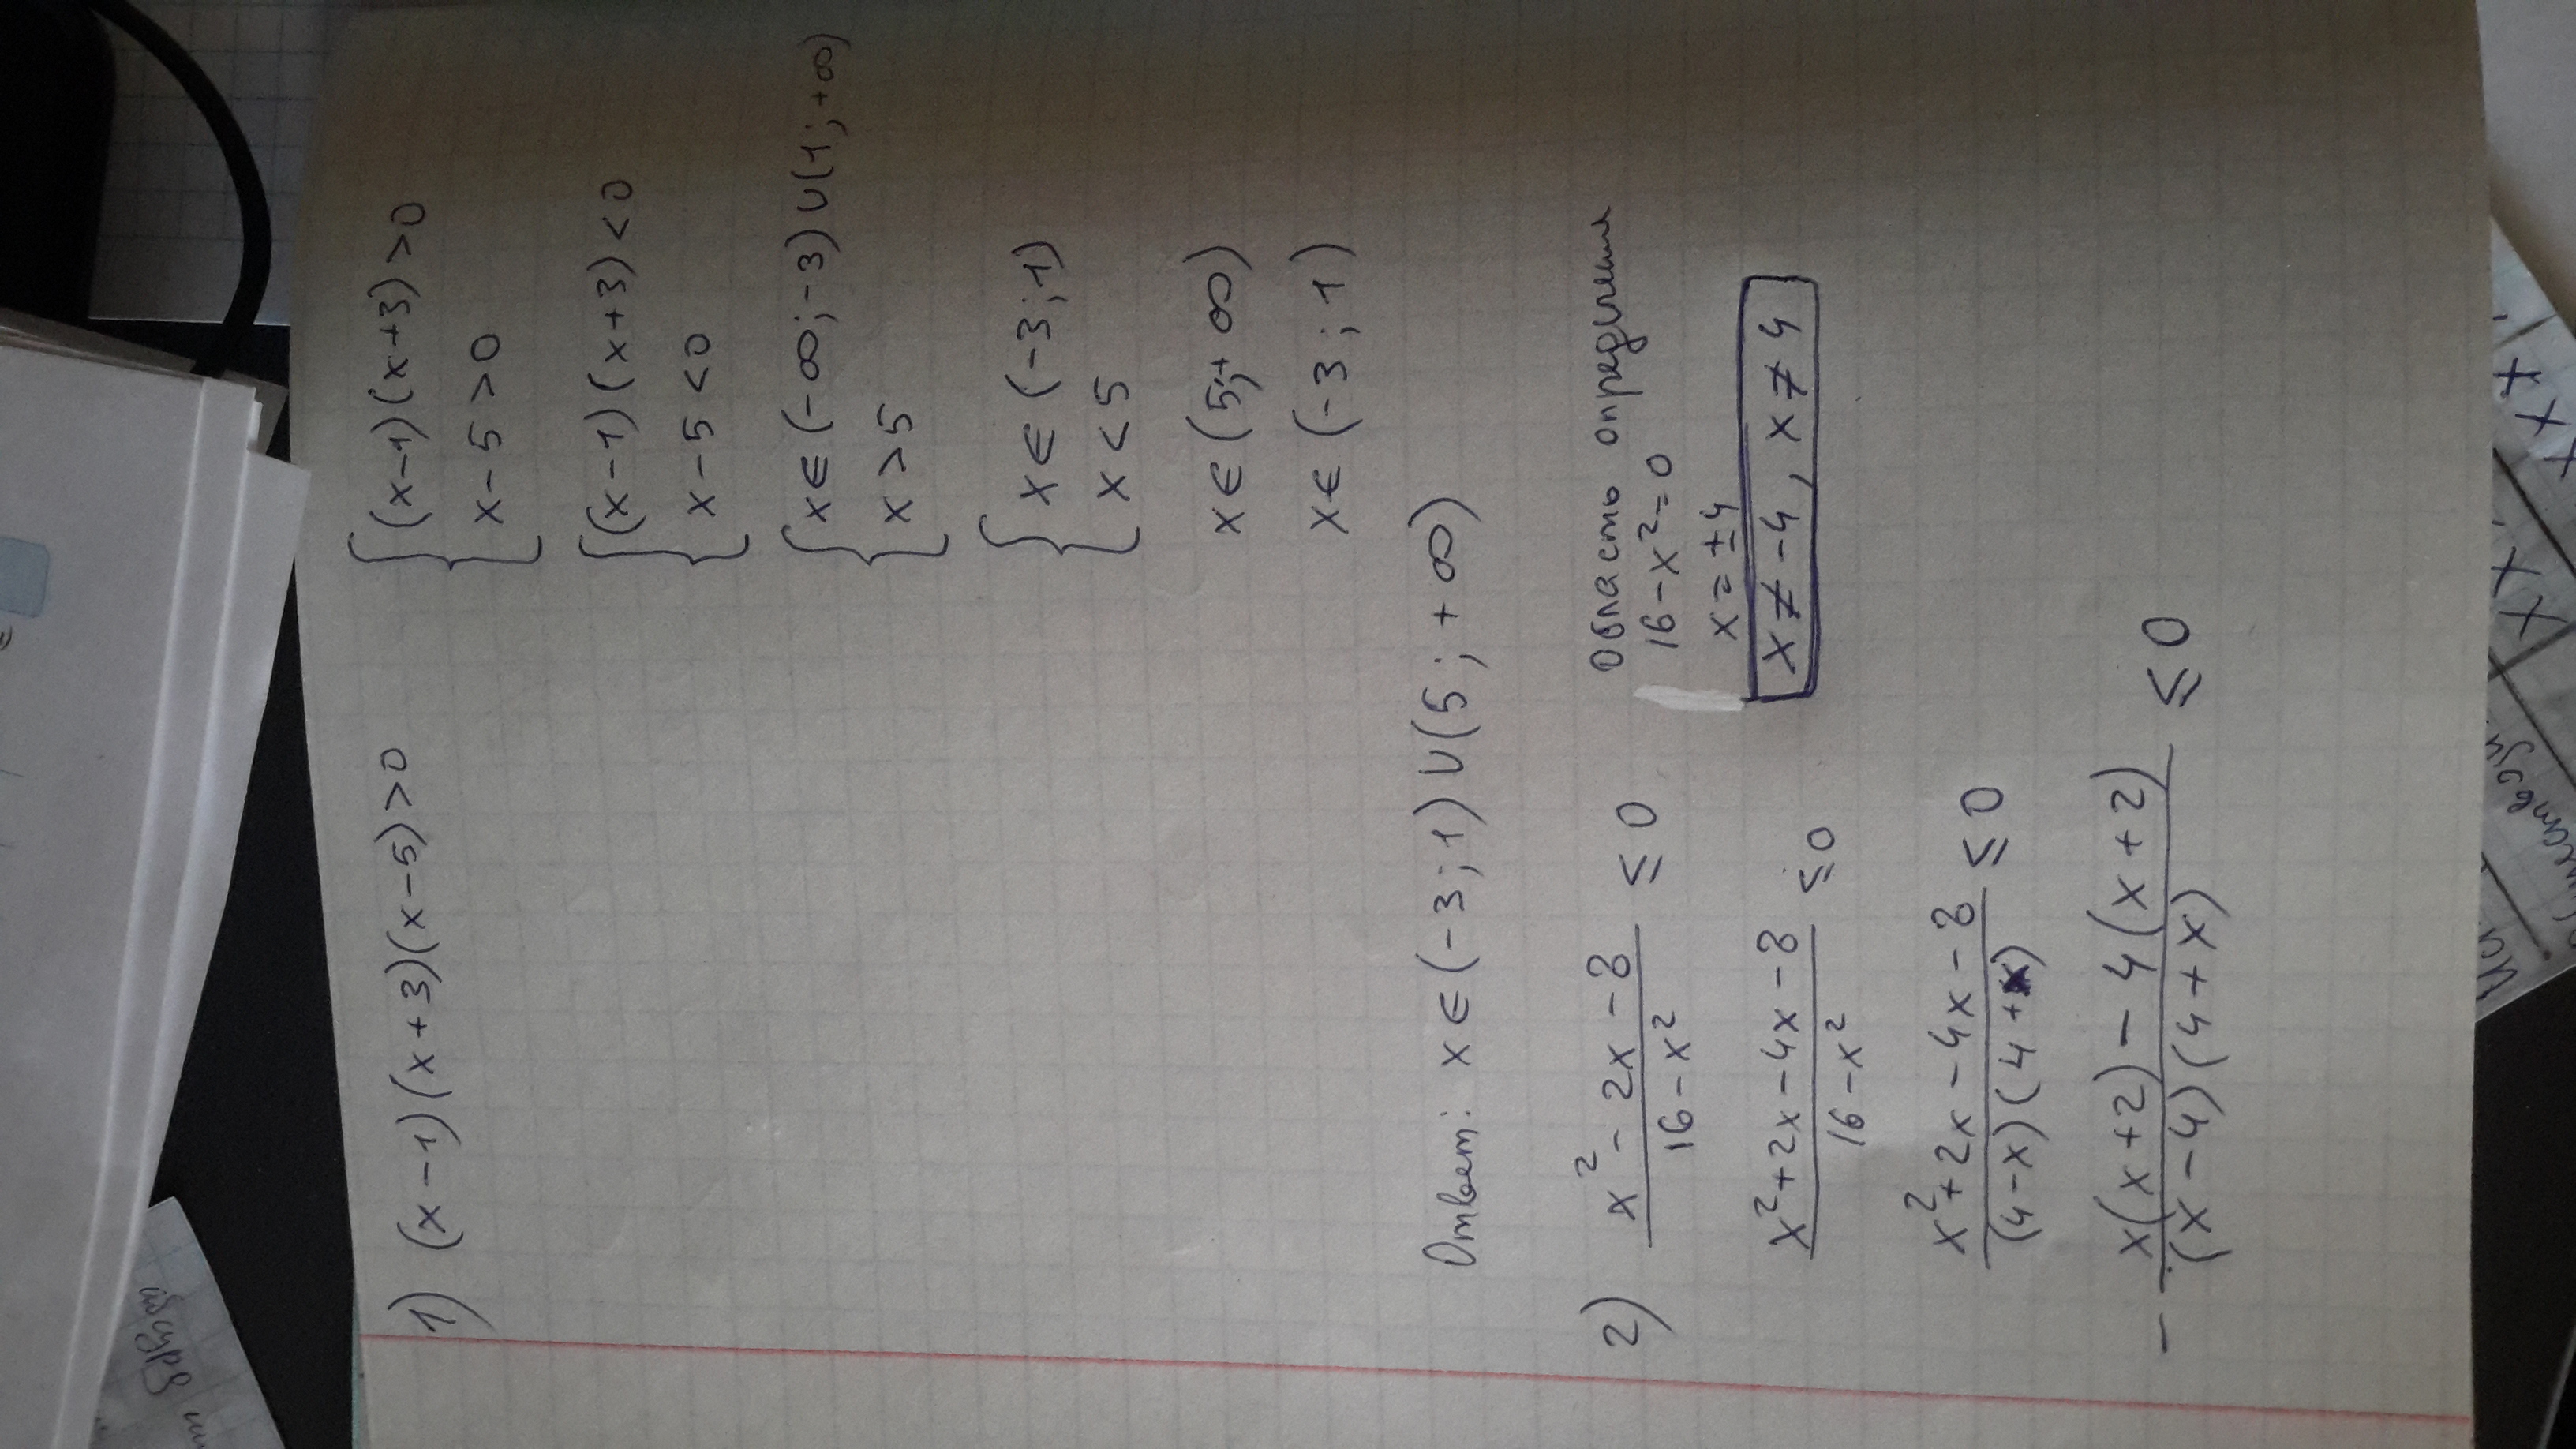 1) (x-1)(x+3)(x-5)>0
{(x-1)(x+3)>0
x-5>0
{(x-1)(x+3)<0
x-5<0
{x∈(-∞;-3)∪(1;+∞)
x>5
{x∈(-3;1)
x<5
x∈(5;+∞)
x∈(-3;1)
Ответ: x∈(-3;1)∪(5;+∞)
2) x²-2x-8/16-x² ≤0
Область определения
16-x²=0
x=±4
x≠-4, x≠4
x²+2x-4x-8/16-x² ≤0
x²+2x-4x-8/(4-x)(4+x) ≤0
- x(x+2)-4(x+2)/(x-4)(4+x) ≤0